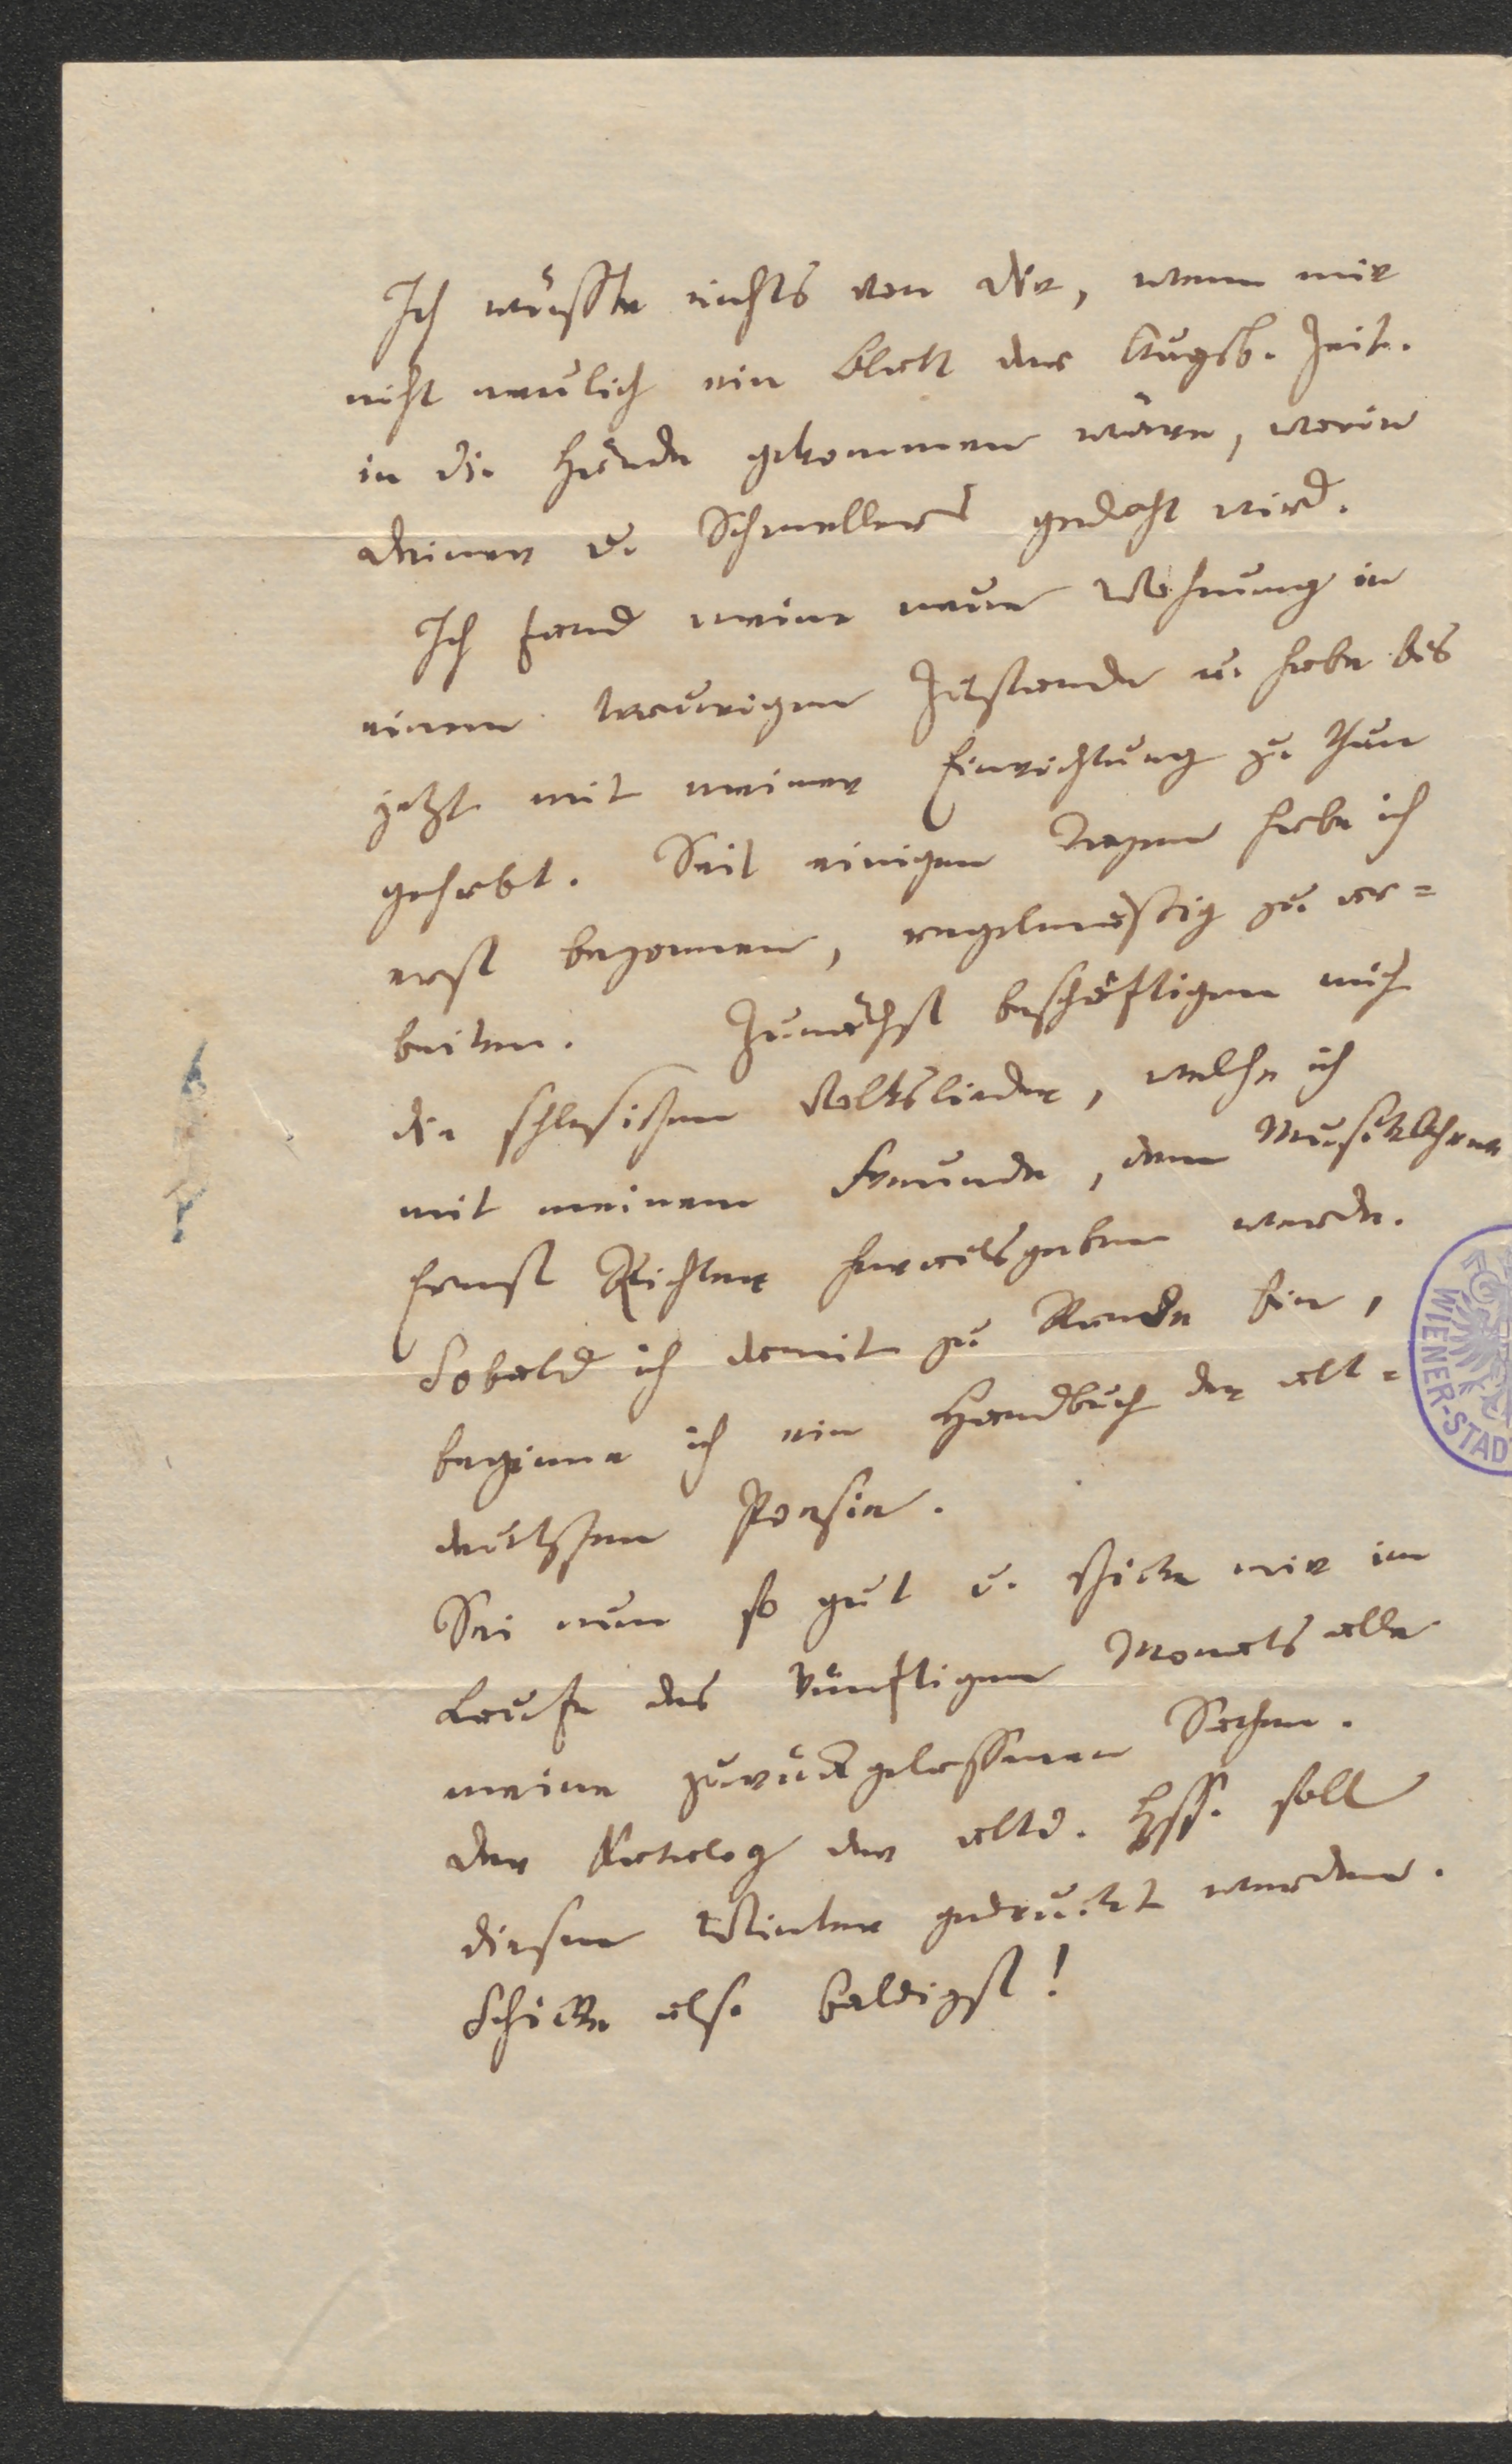 Ich wüßte nichts von Dir, wenn mir
nicht neulich ein Blatt der Augsb. Zeit.
in die Hände gekommen wäre, worin
Deiner u. Schmellers gedacht wird.
Ich fand meine neue Wohnung in
einem traurigen Zustande u. habe bis
jetzt mit meiner Einrichtung zu thun
gehabt. Seit einigen Tagen habe ich
erst begonnen, regelmäßig zu ar=
beiten. Zunächst beschäftigen mich
die schlesischen Volkslieder, welche ich
mit meinem Freunde, dem Musiklehrer
Ernst Richter herausgeben werde.
Sobald ich damit zu Rande bin,
beginne ich ein Handbuch der alt=
deutschen Poesie.
Sei nun so gut u. schicke mir im
Laufe des künftigen Monats alle
meine zurückgelassenen Sachen.
Der Katalog der altd. Hss. soll
diesen Winter gedruckt werden.
Schicke also baldigst!
WIENER-STAD